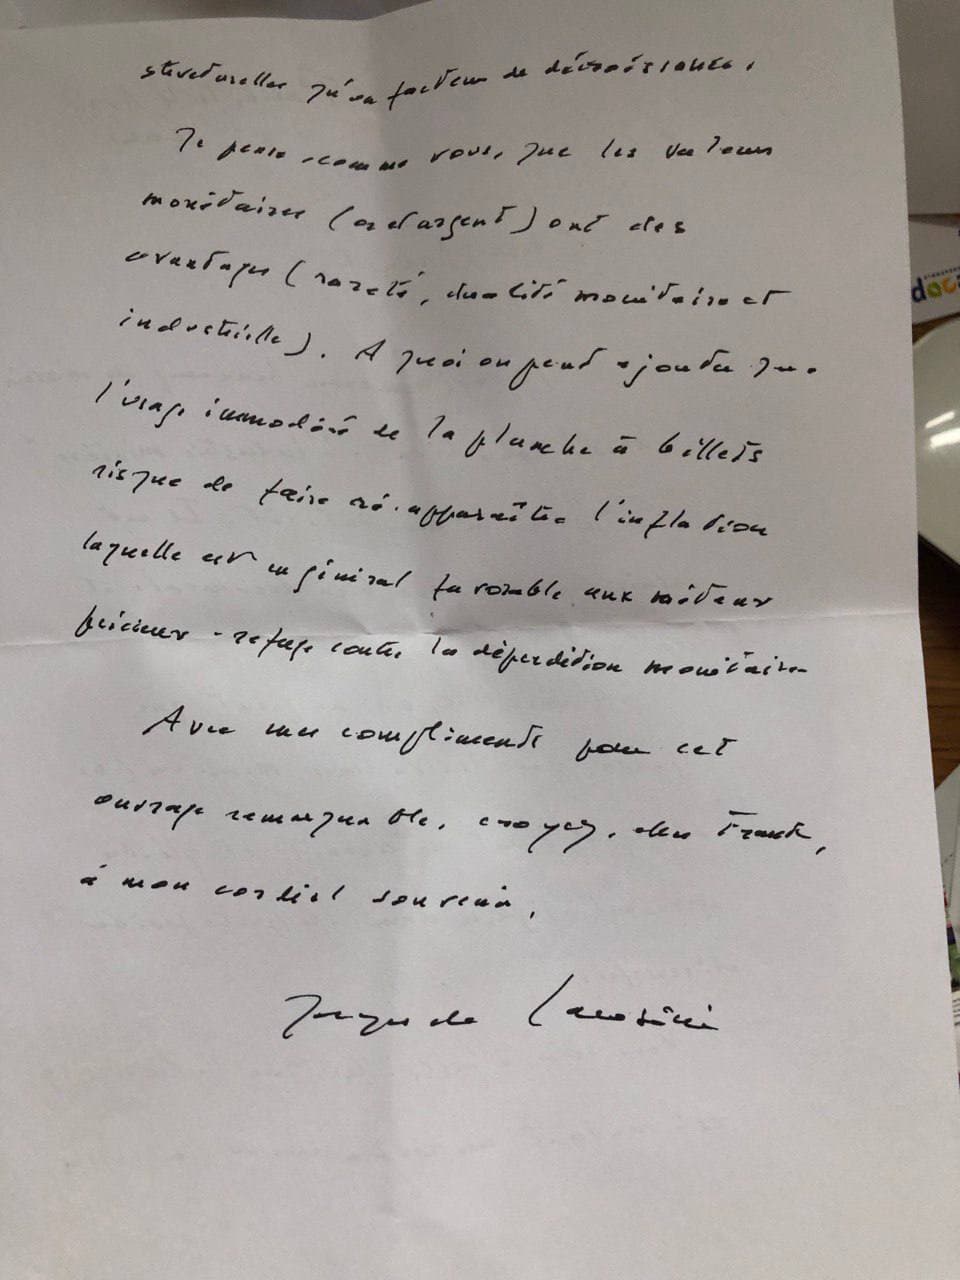 structurelles qu'un facteur de décroissance.
Je pense, comme vous, que les valeurs
monétaires (or et argent) ont des
avantages (rareté, dualité monétaire et
industrielle). A quoi on peut ajouter que
l'usage immodéré de la planche à billets
risque de faire ré-apparaître l'inflation
laquelle est en général favorable aux métaux
précieux - refuge contre la déperdition monétaire
Avec mes compliments pour cet
ouvrage remarquable, croyez, cher Franck,
à mon cordial souvenir,
Jacques de Larosière
doc